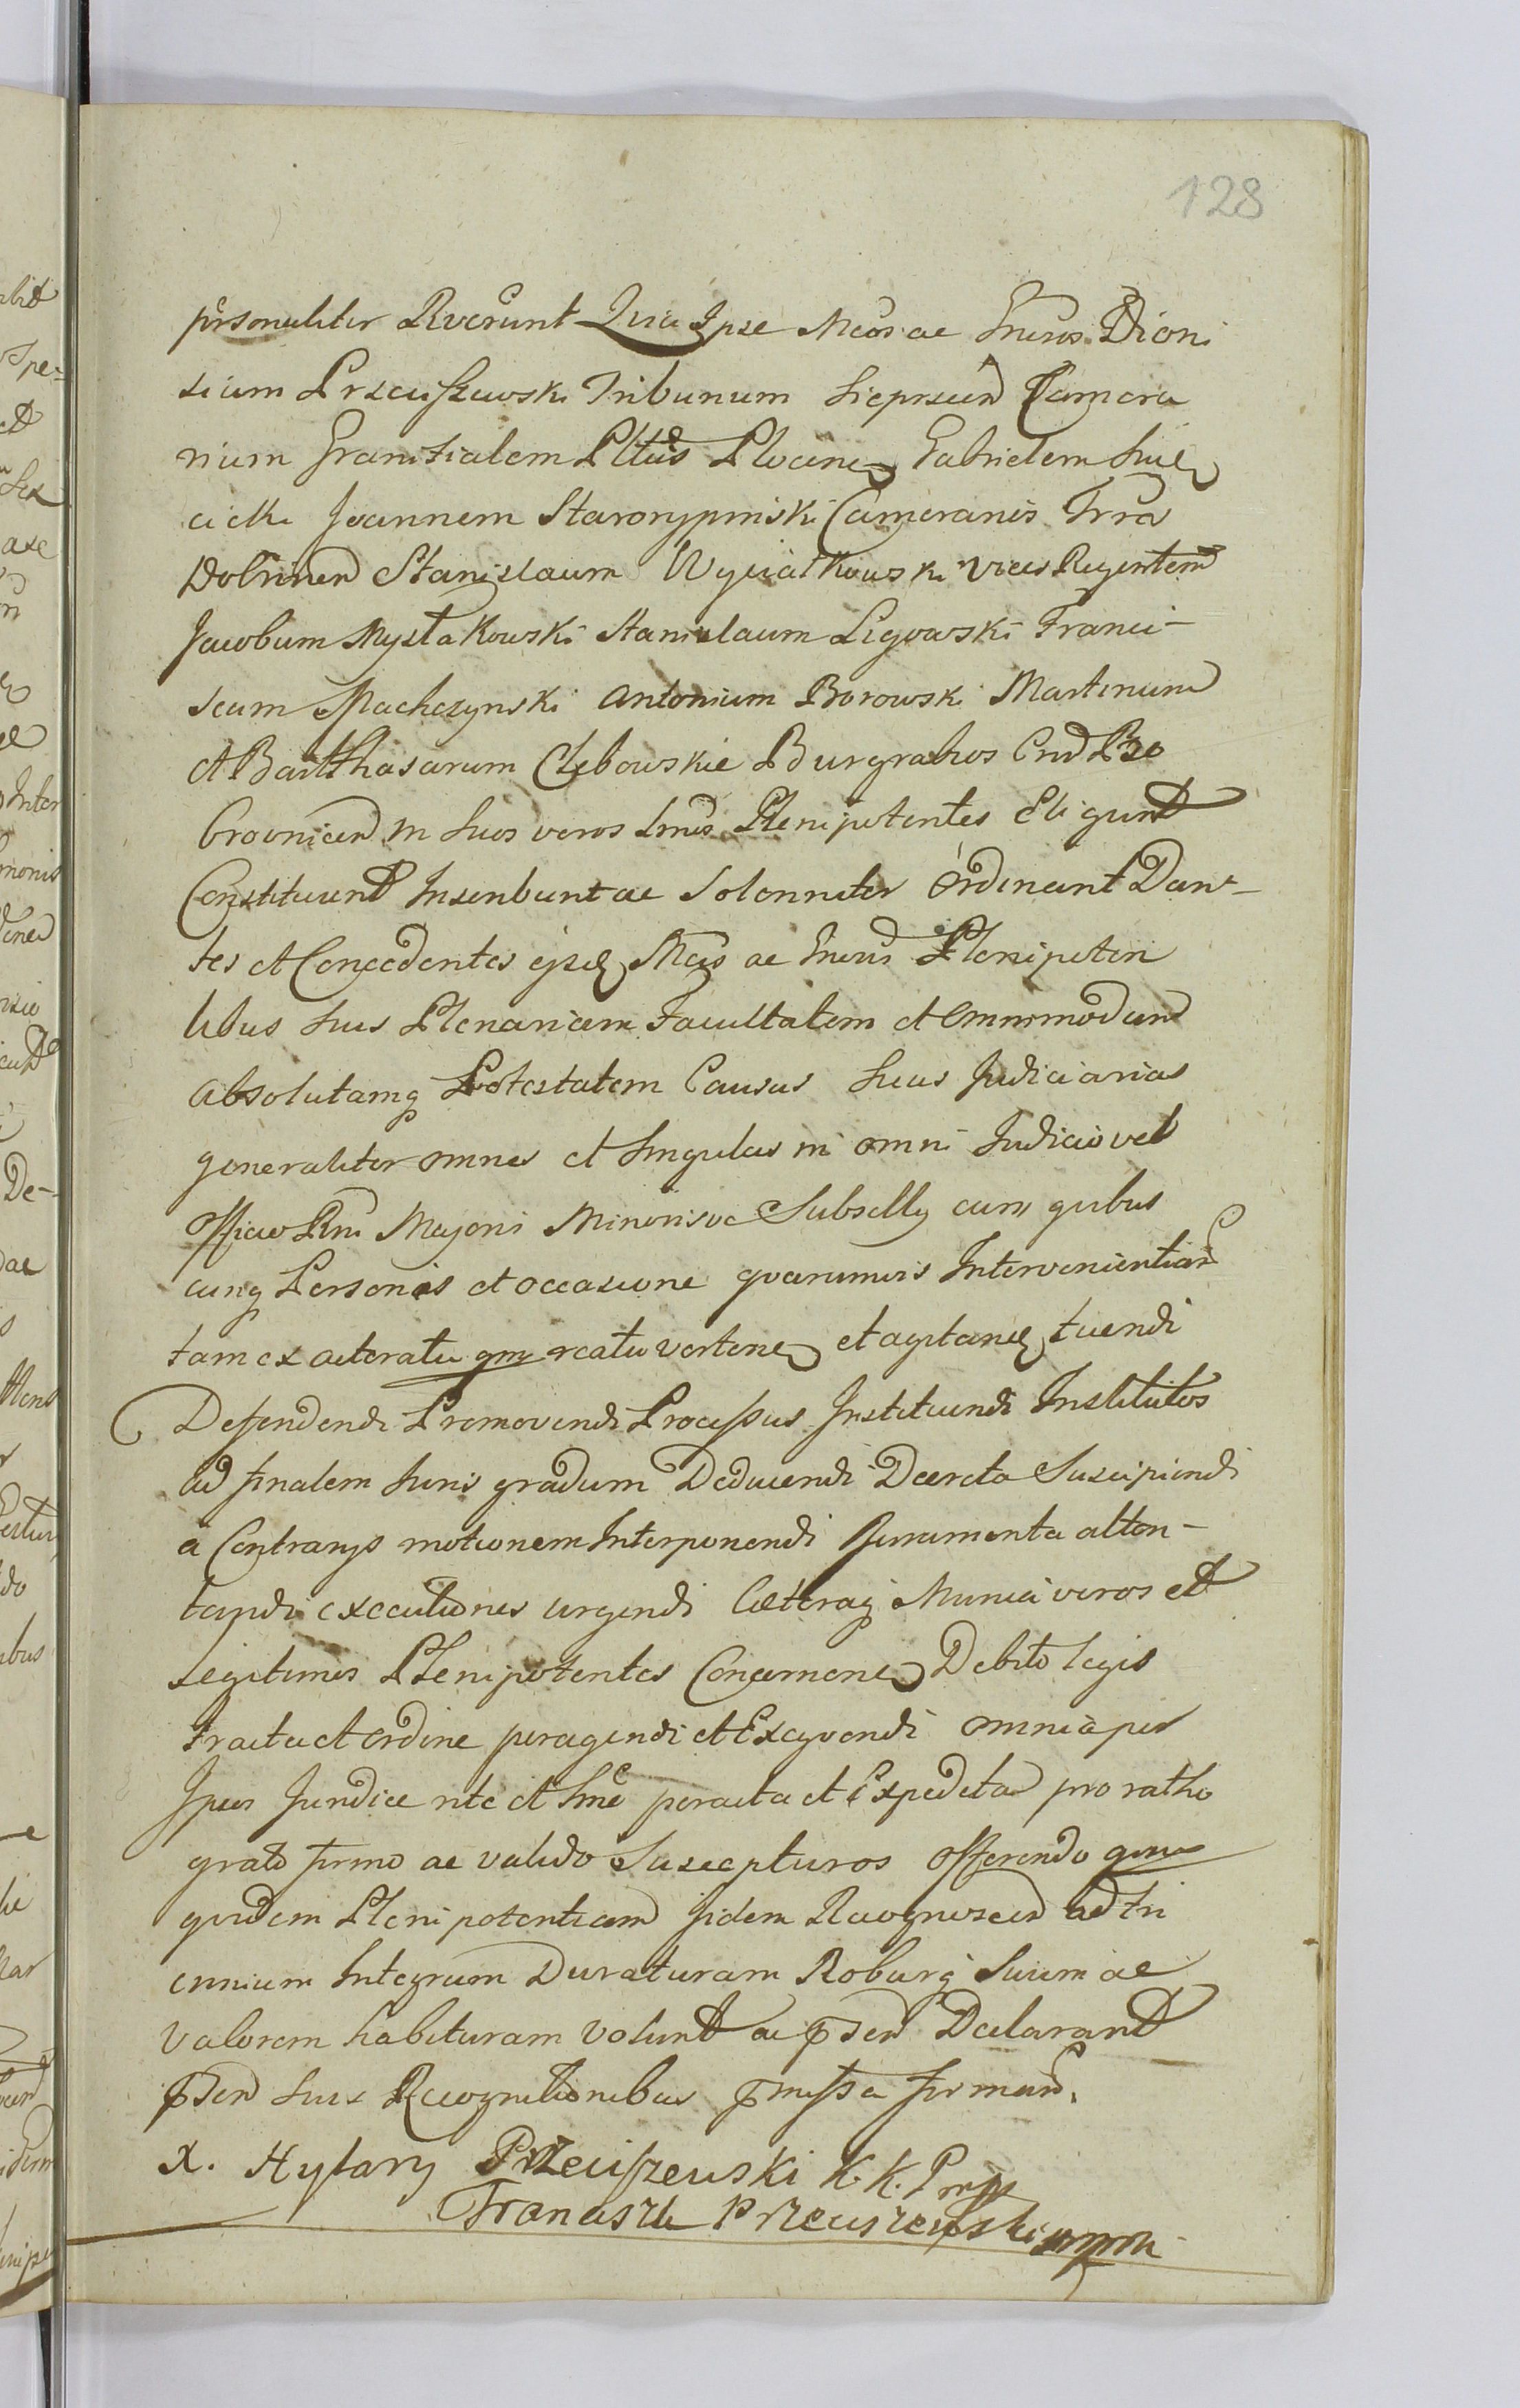 128
personaliter Rverunt Quia Ipse Mcos ac Gneros Dioni
sium Przeciszewski Tribunum Sieprscen Camera
rium Granitialem Plttus Plocen Gabrielem
cicki Joannem Starorypinski Camerarios Trra
Dobrinen Stanislaum Wyciałkowski vices Regentem
Jacobum Mystakowski Stanislaum Ligowski Franci-
scum Machczynski Antonium Borowski Martinum
et Balthasarum Chlebowskie Burgrabios Cnd Bo
brovnicen in Suos veros Lmos Plenipotentes Eligunt
Constituunt Inscribunt ac Solenniter Ordinant Dan-
tes et Concedentes ijsd Mcis ac Gneris Plenipoten
tibus Suis Plenariam Facultatem et Omnimodam
Absolutamq Potestatem Causas Suas Judiciarias
generaliter omnes et Singulas in omni Judicio vel
Officio Rni Majoris Minorisve Subsellij cum quibus
cunq Personis et occasione quarumvis Intervenientiar
tam ex acteratu qm reatu verten et agitan tuendi
Defendendi Promovendi Processus Instituendi Institutos
ad finalem Juris gradum Deducendi Decreta Suscipiendi
a Contrarijs motionem Interponendi Juramenta atten-
tandi executiones urgendi Cæteraq Munia veros et
Legitimos Plenipotentes Concernen Debito legis
tractu et ordine peragendi et Exequendi omnia per
Ipsos Juridice rite et Lme peracta et Expedita pro ratho
grato firmo ac valido Suscepturos Offerendo qm
quidem Plenipotentiam Jidem Recognoscen ad tri
ennium Integrum Duraturam Roburq Suum ac
Valorem habituram Volunt ac psen Declarant
psen Suis Recognitionibus pmissa firman.
X. Hylary Przeciszewski K. K. Prep
Franciszek Przeciszewski mpm